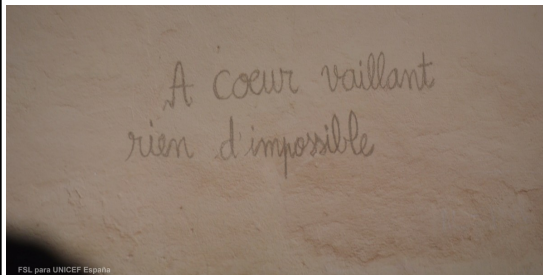 A coeur vaillant
rien d'impossible
FSL para UNICEF España